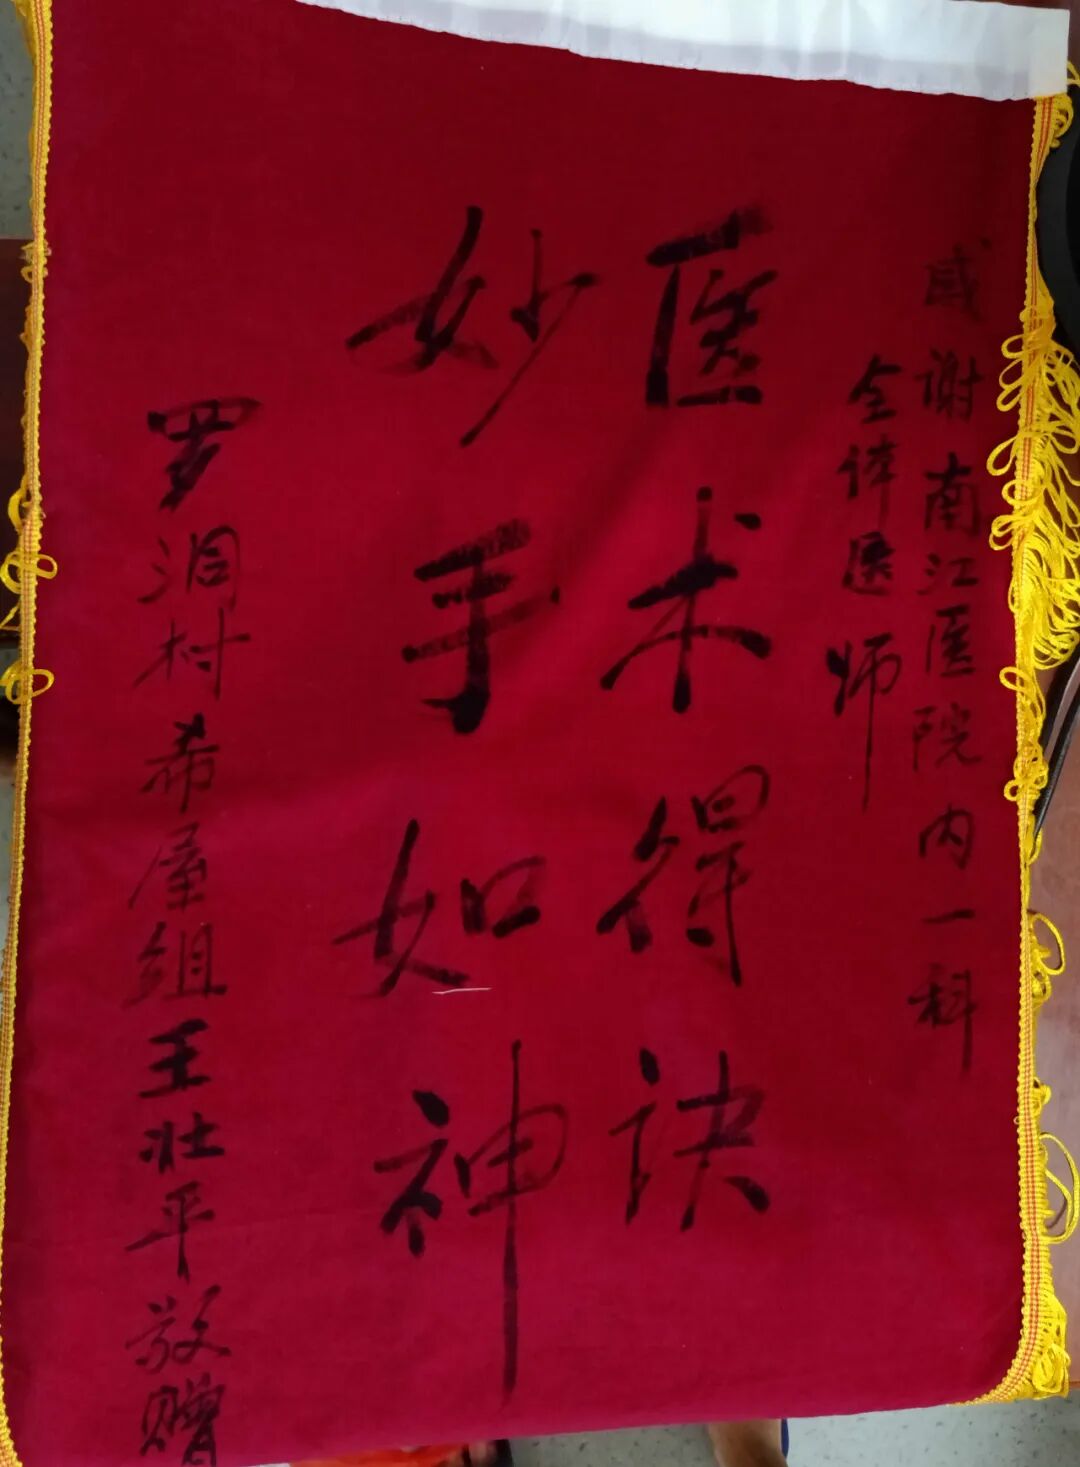 感谢南江医院内一科
全体医师
医术得诀
妙手如神
罗洞村希屋组王壮平敬赠